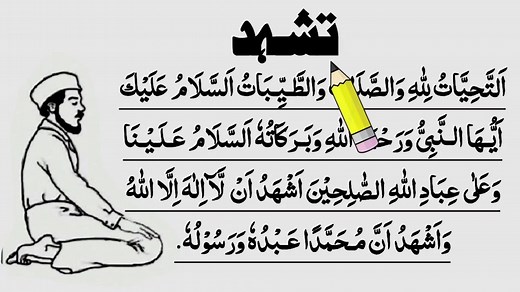 تشہد
اَلتَّحِيَّاتُ لِلّٰهِ وَالطَّيِّبَاتُ اَلسَّلَامُ عَلَيْكَ
اَيُّهَا النَّبِيُّ اللّٰهِ وَبَرَكَاتُهٗ اَلسَّلَامُ عَلَيْنَا
وَعَلٰى عِبَادِ اللّٰهِ الصّٰلِحِيْنَ اَشْهَدُ اَنْ لَّاۤ اِلٰهَ اِلَّا اللّٰهُ
وَاَشْهَدُ اَنَّ مُحَمَّدًا عَبْدُهٗ وَرَسُوْلُهٗ.